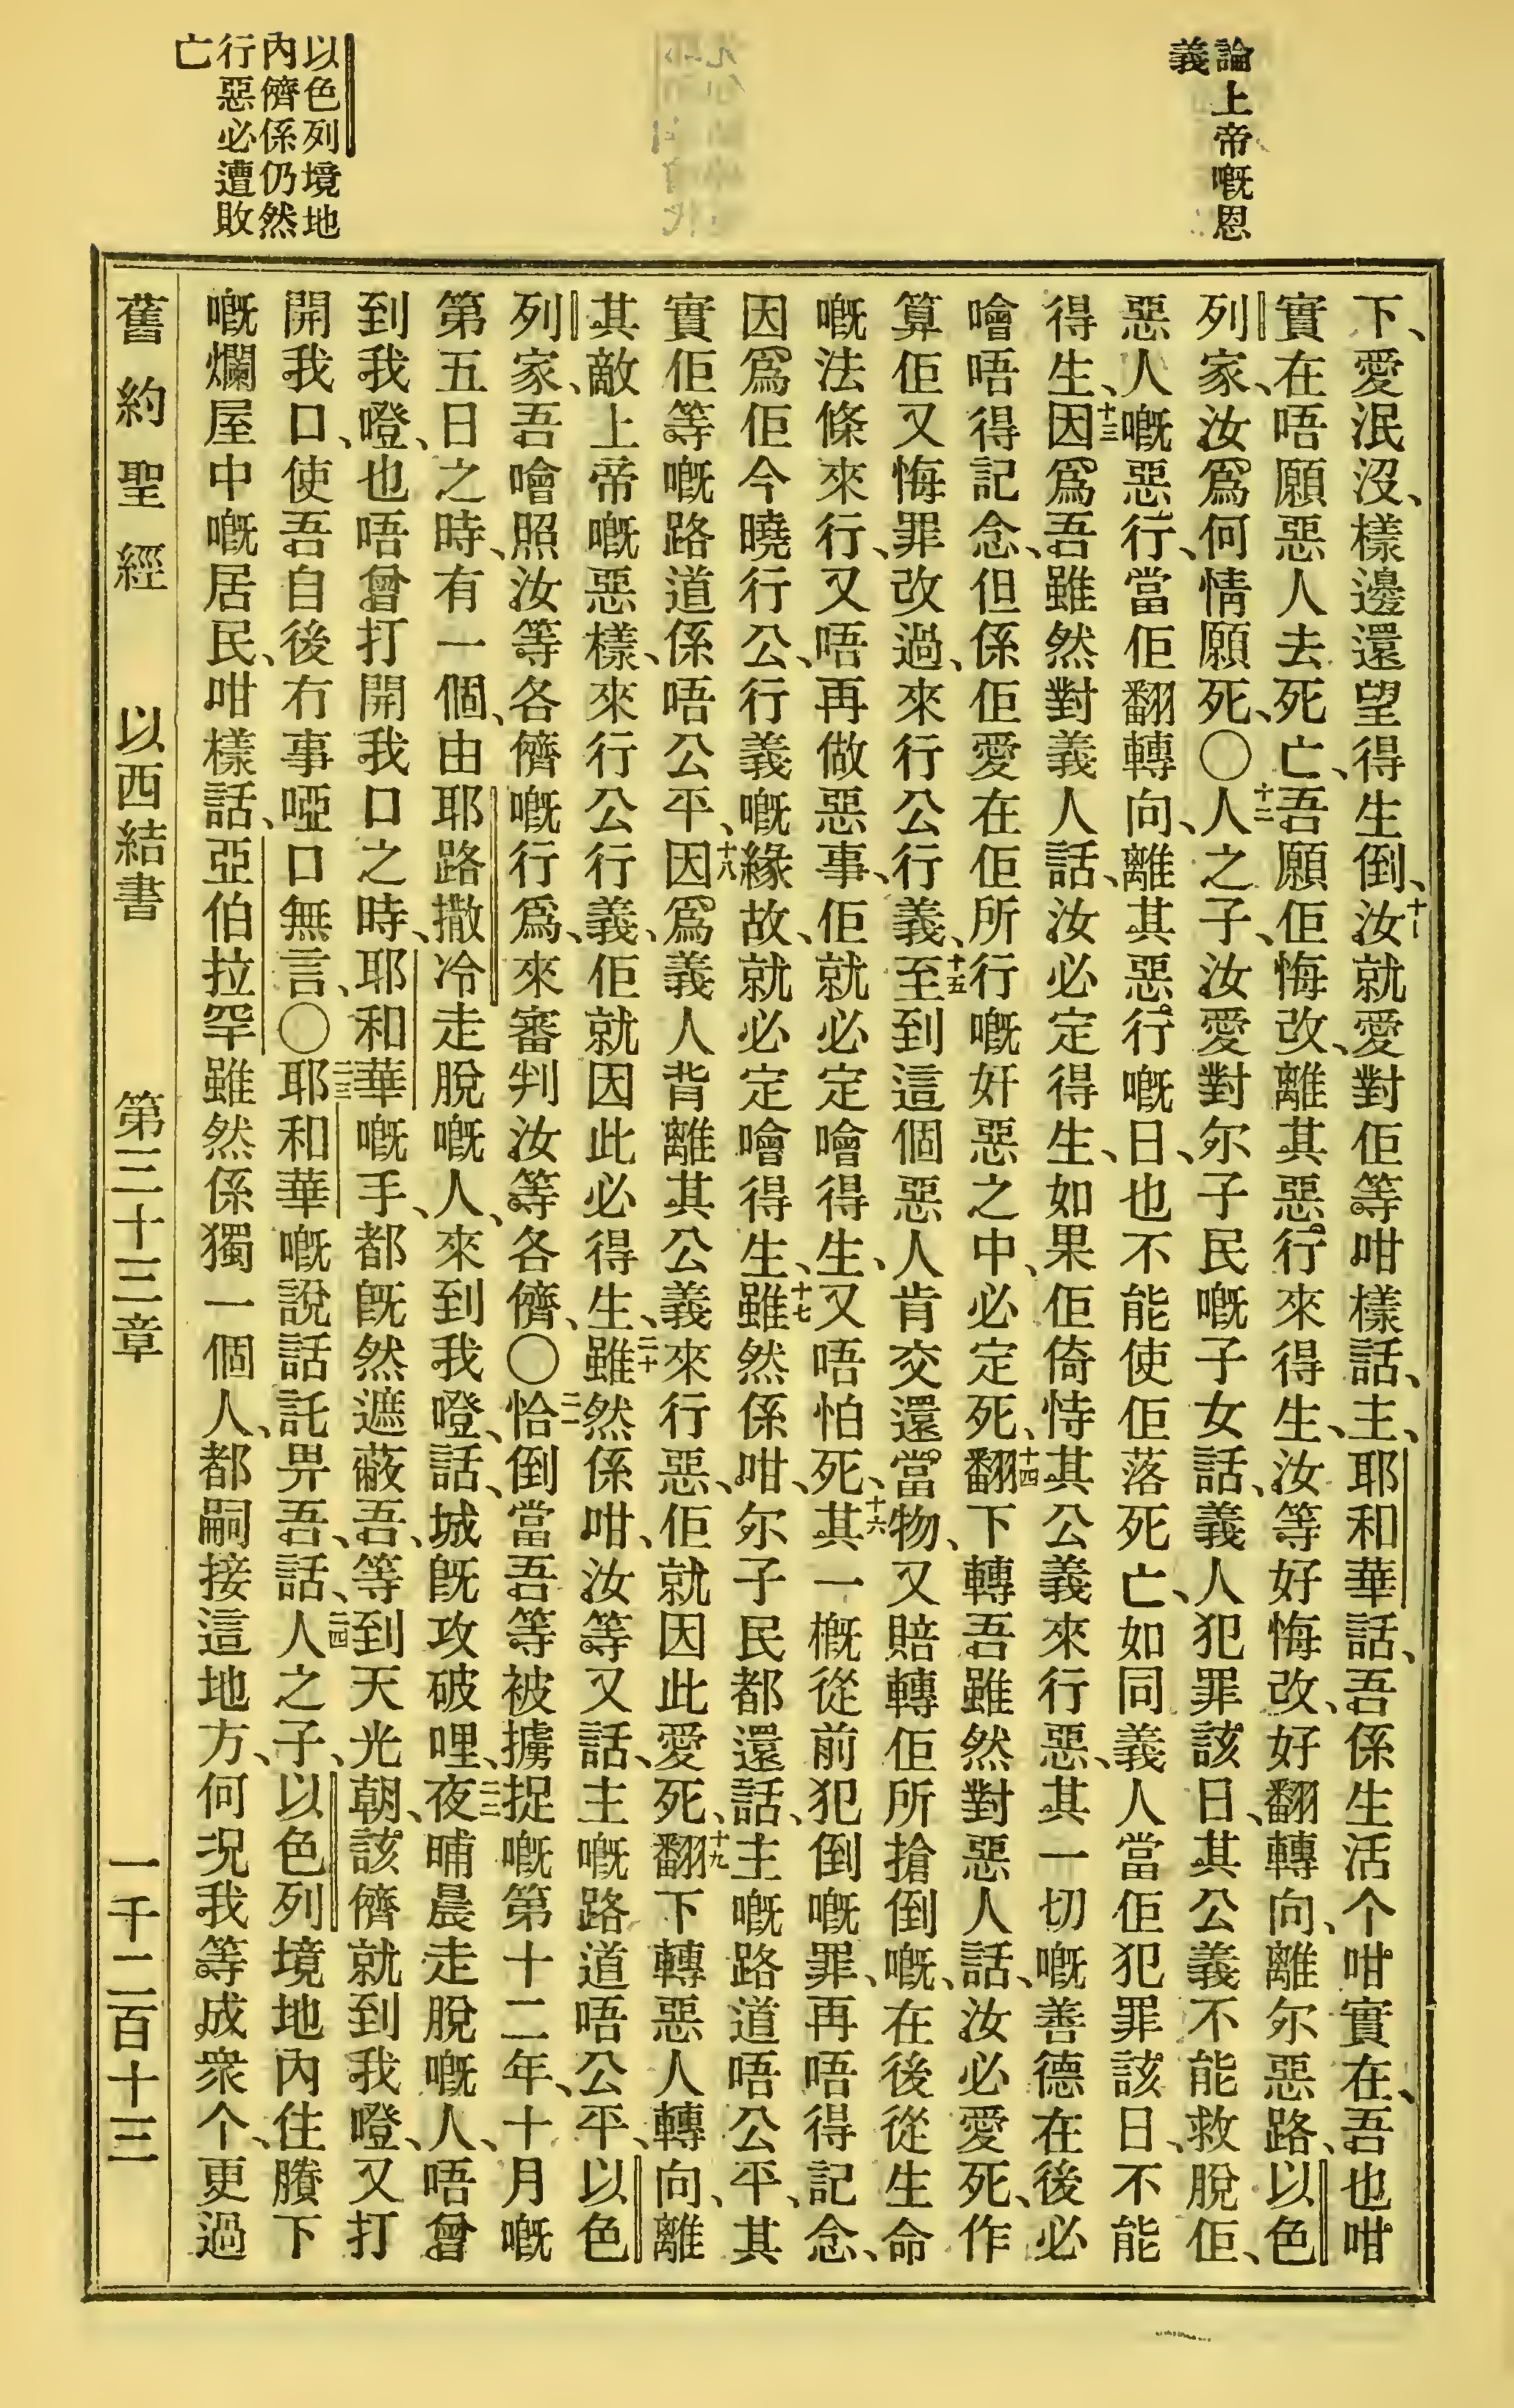 論上帝嘅恩
義
以色列境地
內儕係仍然
行惡必遭敗
亡
下、愛泯沒、樣邊還望得生倒、十一汝就愛對佢等咁樣話、主、耶和華話、吾係生活个咁實在、吾也咁
實在唔願惡人去死亡、吾願佢悔改、離其惡行來得生、汝等好悔改、好翻轉向、離尔惡路、以色
列家、汝爲何情願死、〇十二人之子、汝愛對尔子民嘅子女話、義人犯罪該日、其公義不能救脫佢、
惡人嘅惡行、當佢翻轉向、離其惡行嘅日、也不能使佢落死亡、如同義人當佢犯罪該日、不能
得生、十三因爲吾雖然對義人話、汝必定得生、如果佢倚恃其公義來行惡、其一切嘅善德在後必
噲唔得記念、但係佢愛在佢所行嘅奸惡之中、必定死、十四翻下轉吾雖然對惡人話、汝必愛死、作
算佢又悔罪改過、來行公行義、十五至到這個惡人肯交還當物、又賠轉佢所搶倒嘅、在後從生命
嘅法條來行、又唔再做惡事、佢就必定噲得生、又唔怕死、十六其一概從前犯倒嘅罪、再唔得記念、
因爲佢今曉行公、行義嘅緣故、就必定噲得生、十七雖然係咁、尔子民都還話、主嘅路道唔公平、其
實佢等嘅路道係唔公平、十八因爲義人背離其公義來行惡、佢就因此愛死、十九翻下轉惡人轉向、離
其敵上帝嘅惡樣、來行公行義、佢就因此必得生、二十雖然係咁、汝等又話、主嘅路道唔公平、以色
列家、吾噲照汝等各儕嘅行爲、來審判汝等各儕、〇二一恰倒當吾等被擄捉嘅第十二年、十月嘅
第五日之時、有一個、由耶路撒冷走脫嘅人、來到我嶝、話、城旣攻破哩、二二夜晡晨走脫嘅人、唔曾
到我嶝、也唔曾打開我口之時、耶和華嘅手、都旣然遮蔽吾、等到天光朝、該儕就到我嶝、又打
開我口、使吾自後冇事啞口無言、〇二三耶和華嘅說話託畀吾、話、二四人之子、以色列境地內住賸下
嘅爛屋中嘅居民、咁樣話、亞伯拉罕雖然係獨一個人、都嗣接這地方、何况我等成衆个、更過
舊約聖經 以西結書 第三十三章 一千二百十三